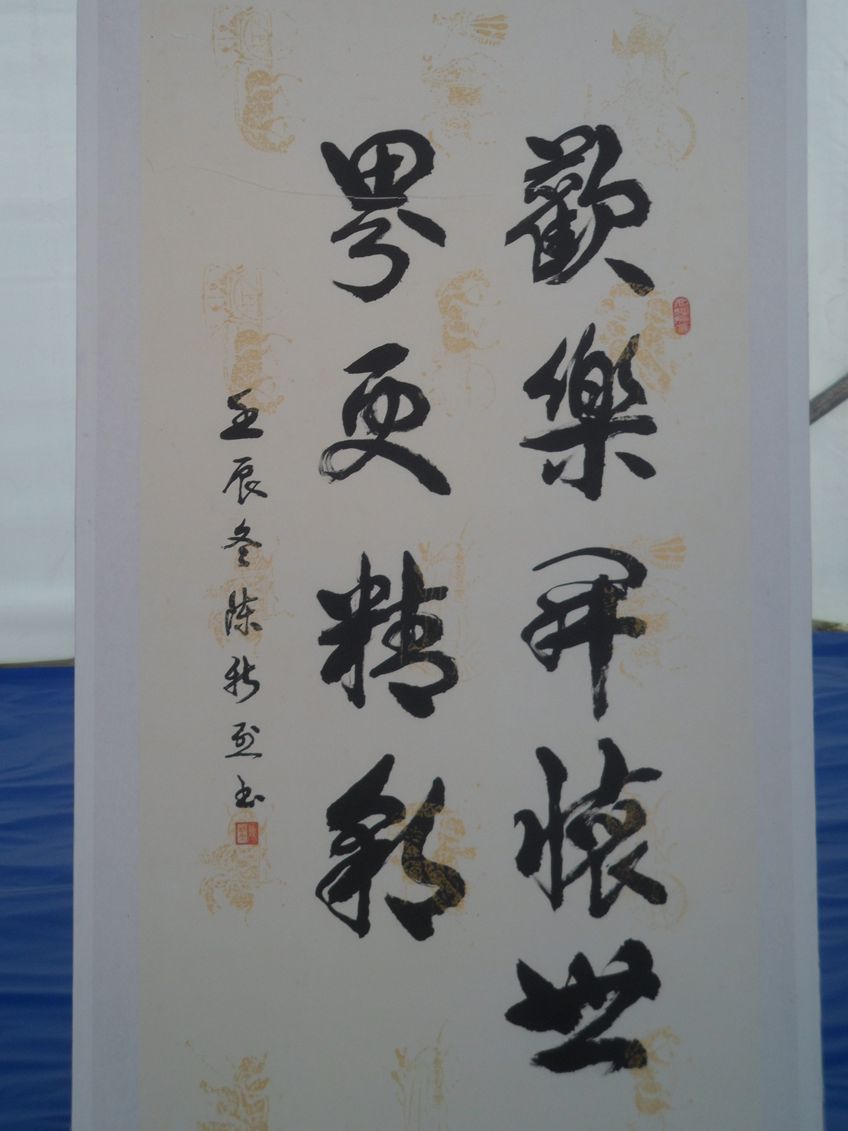 歡樂開懷世
界更精彩
壬辰冬陳新烈書